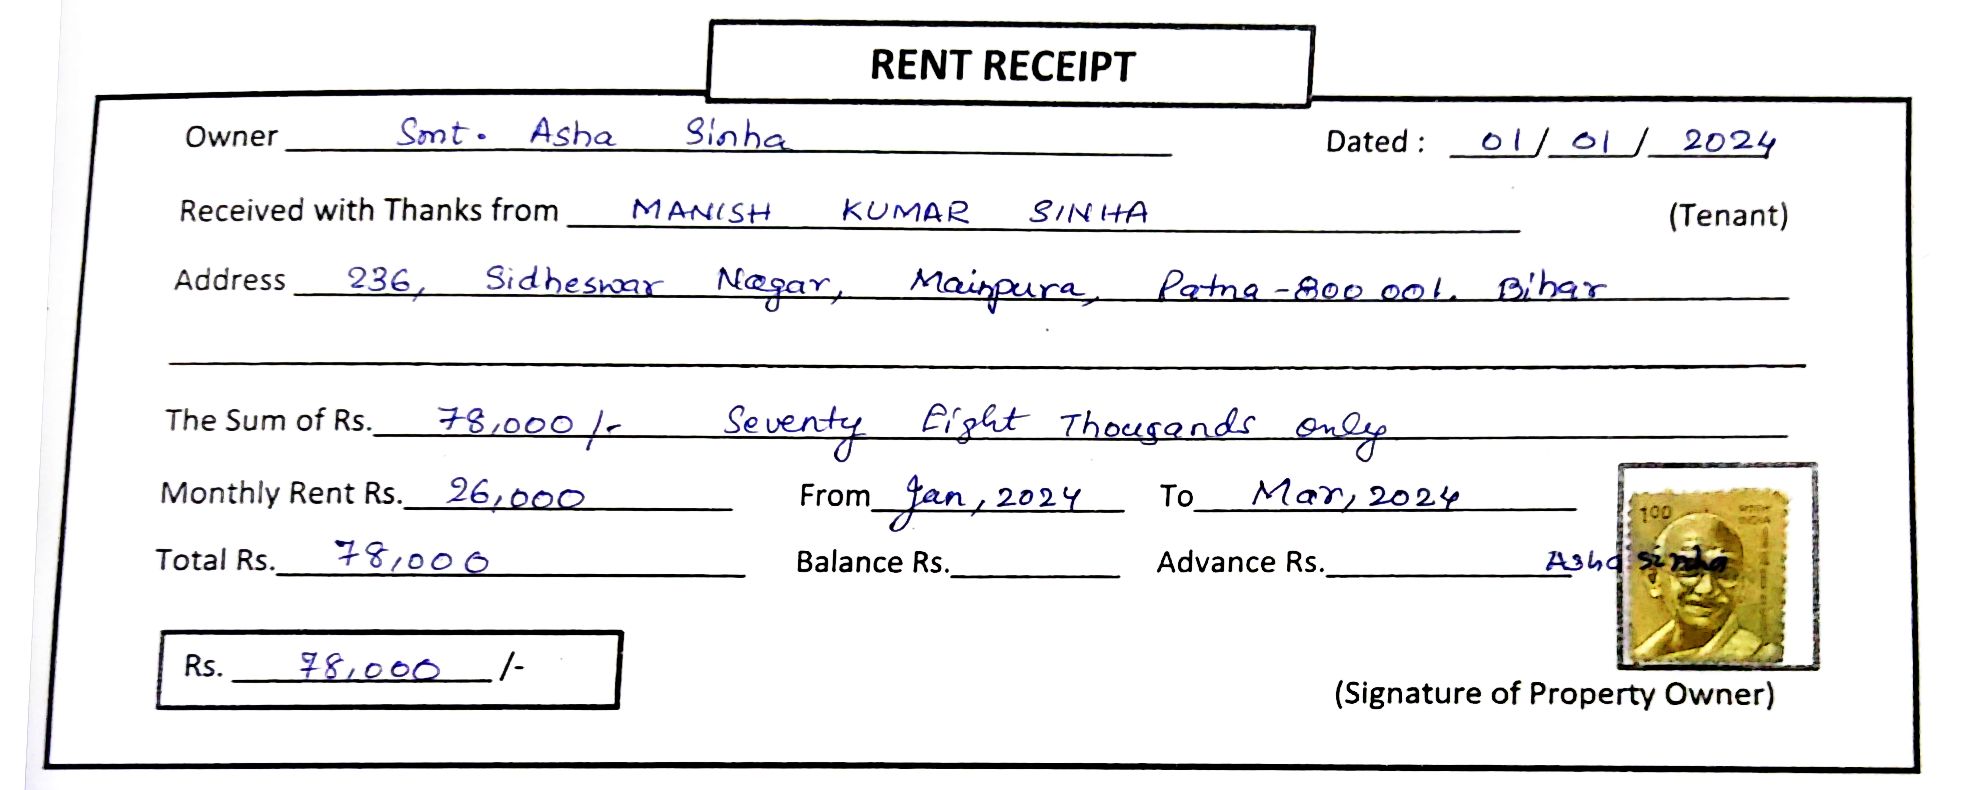 RENT RECEIPT
Owner Smt. Asha Sinha Dated : 01/01/2024
Received with Thanks from MANISH KUMAR SINHA (Tenant)
Address 236, Sidheswar Nagar, Mainpura, Patna-800 001. Bihar
The Sum of Rs. 78,000/- Seventy Eight Thousands only
Monthly Rent Rs. 26,000 From Jan, 2024 To Mar, 2024
100
INDIA
Total Rs. 78,000 Balance Rs. Advance Rs. Asha Sinha
Rs. 78,000 /-
(Signature of Property Owner)